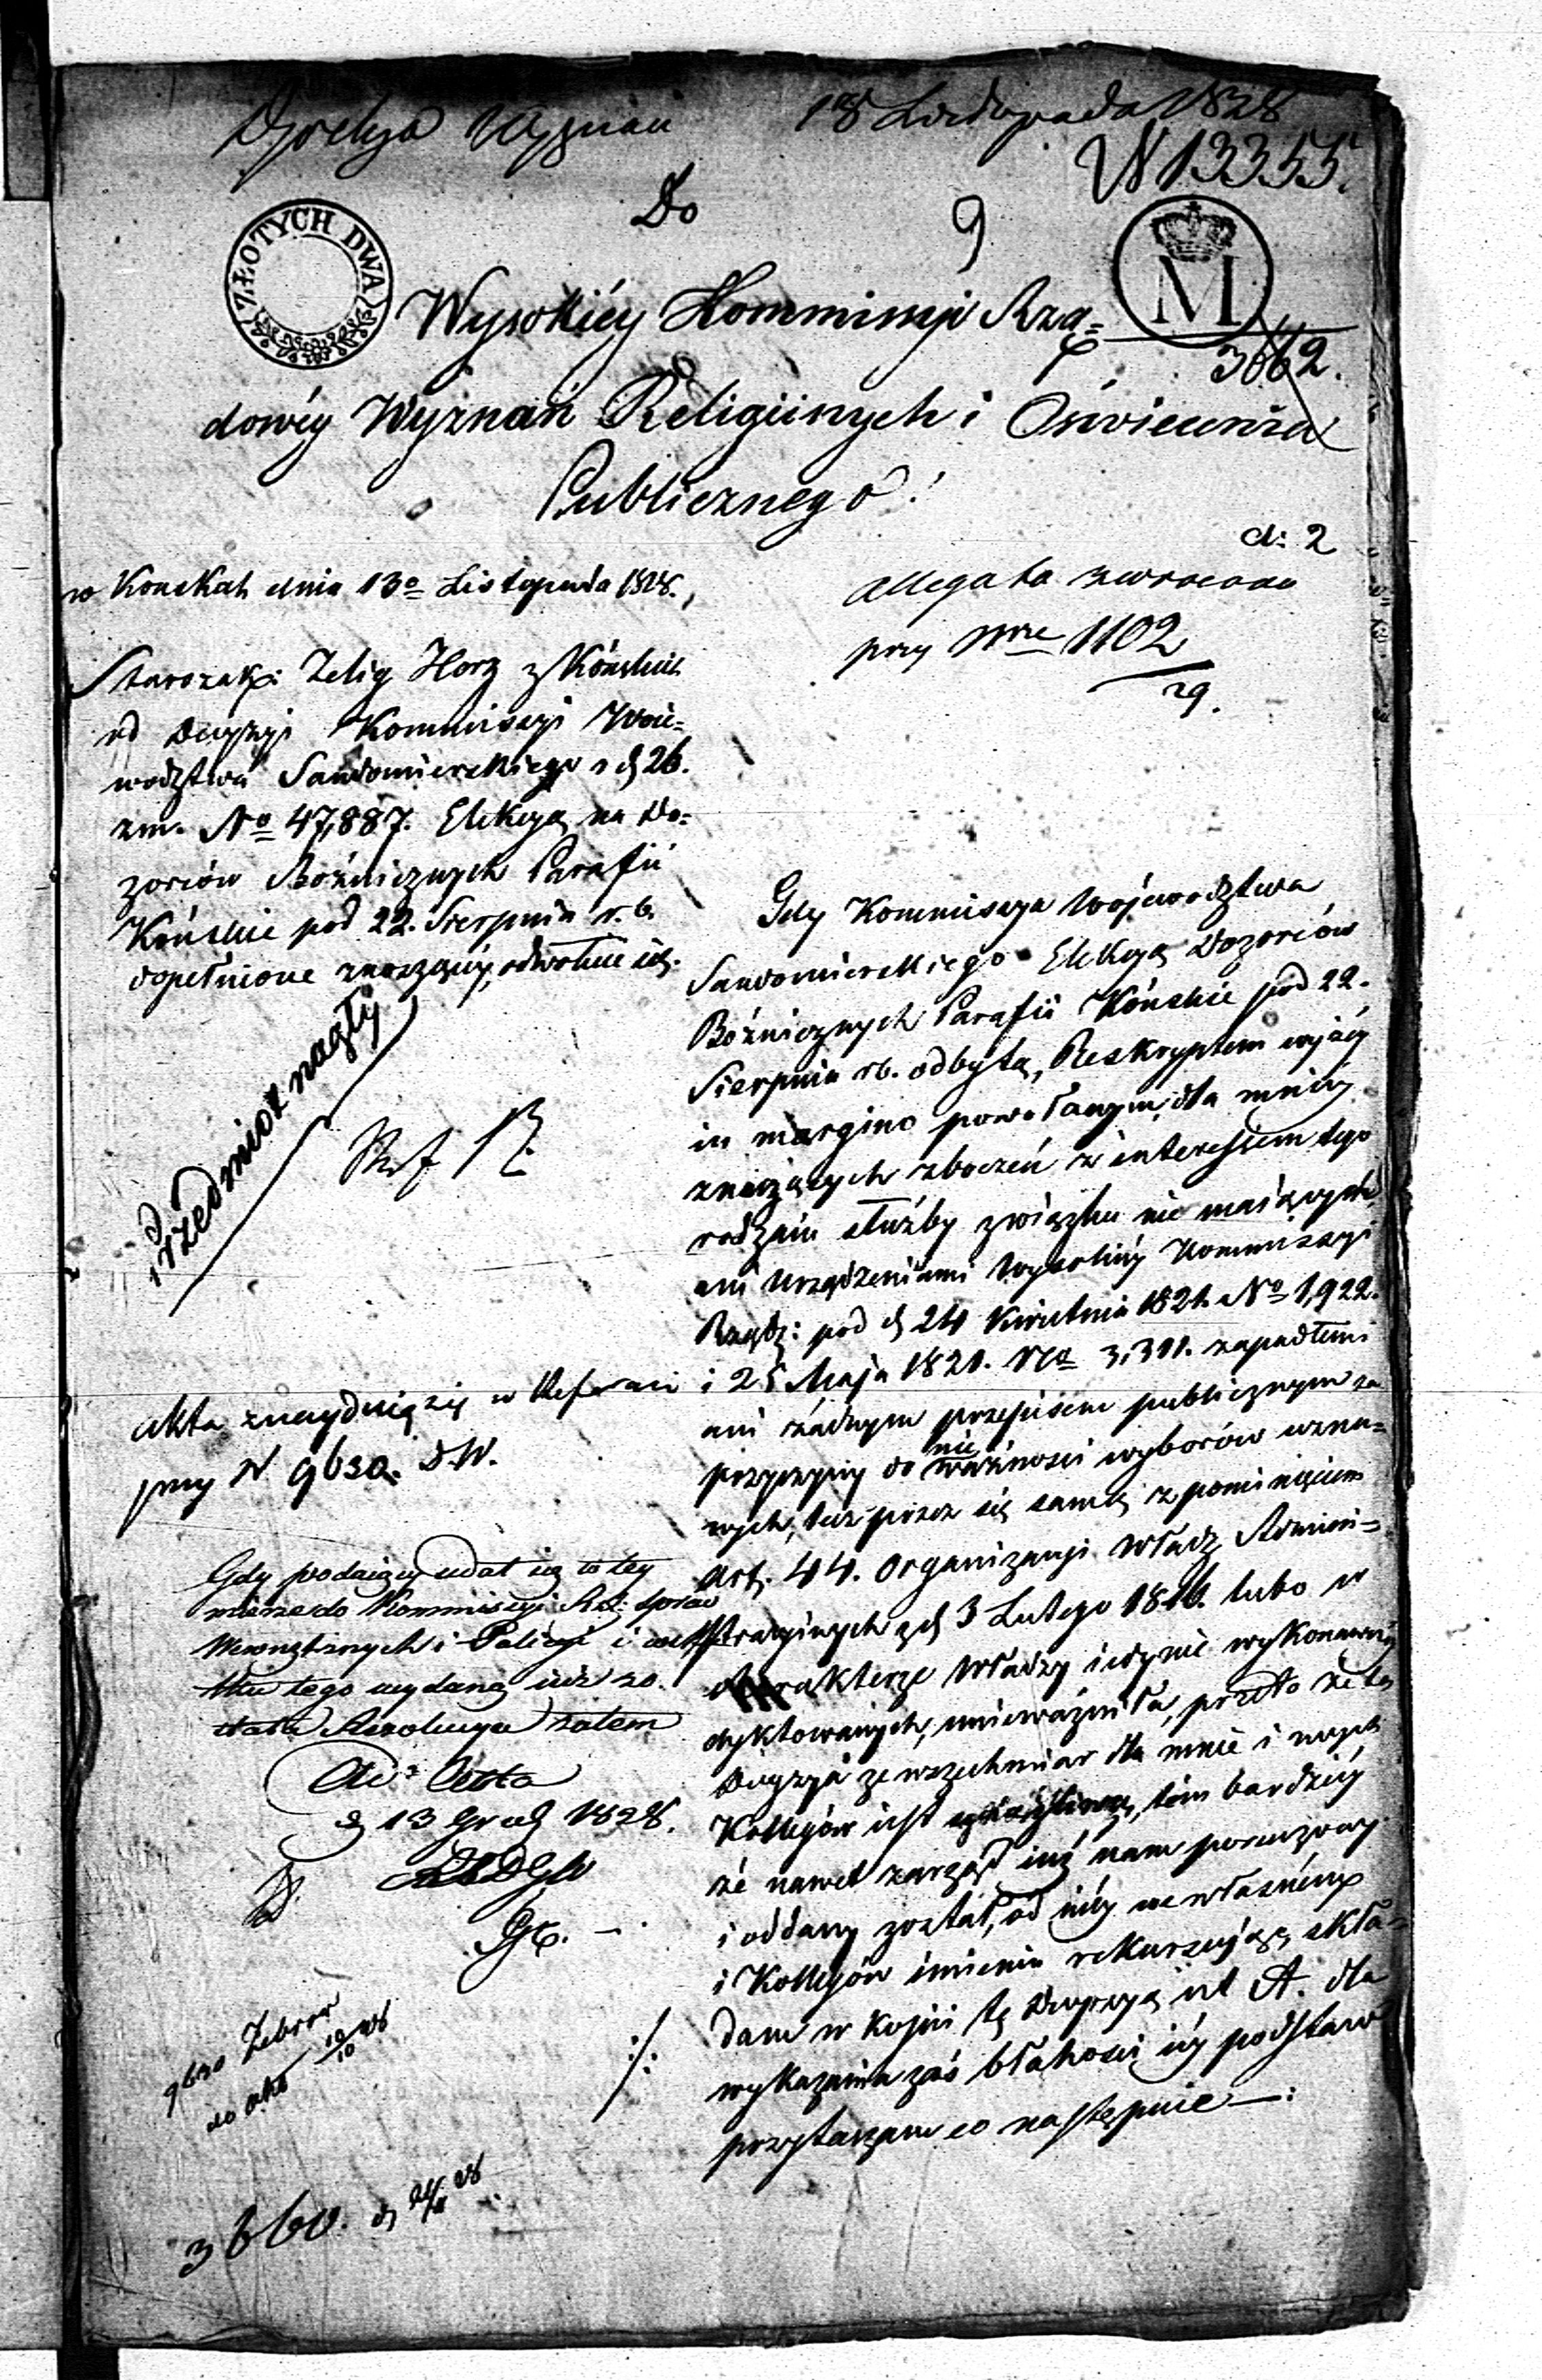 Dyrekcya Wyznań 18 Listopada 1828
N 13355.
Do
9
ZŁOTYCH DWA
M
Wysokiéy Kommissyi Rzą=
3662.
dowéy Wyznań Religiinych i Oświecenia
Publicznego!
d: 2
allegata zwrocono
przy Nrze 1102
29.
w Konskch dnia 13o Listopada 1828.,
Starozak: Zelig Horz z Końskich
od Decyzyi Kommissyi Woie-
wodztwa Sandomierskiego z d 26.
zm. No 47,887. Elekcyą na Do=
zorców Bóżniczych Parafii
Końskie pod 22. Sierpnia r. b.
dopełnione znoszącéy, odwołuie się.
Przedmiot nagły
akta znayduią się w Referacie
przy N 9630. D.W.
Gdy podaiący udał się w tey
mierze do Kommissyi Rz: Spraw
Wewnętrznych i Policyi i
tku tego wydaną iuż zo.
stała Rezolucya zatem
Ad Acta
d 13 Grud 1828.
9630 Zebrar
do akt 10/10 28
3660. d 24/11 28
Gdy Kommissya Wojewodztwa
Sandomierskiego Elekcyą Dozorców
Bóżniczych Parafii Końskie pod 22.
Sierpnia rb. odbytą, Reskryptem wyżéy
in margine powołanym, dla mniéy
znaczących zboczeń z interessem tego
rodzaiu służby związku nie maiących,
ani Urządzeniami Wysokiéy Kommissyi
Rządz: pod d 24 Kwietnia 1821. No 1,922.
i 25 Maja 1821. No 3,311. zapadłemi
ani żadnym przepisem publicznym za
przyczyny do nie ważności wyborów uzna=
nych, lecz przez się samą z pominięciem
Art. 44. Organizacyi Władz Admini=
stracyinych z d 3 Lutego 1816. lubo w
charakterze Władzy iedynie wykonawczéy
dyktowanych, unieważniła, przeto że ta
Decyzya ze wszechmiar dla mnie i moych
Kollegów iest, tém bardziéy
że nawet zarząd iuż nam poruczony
i oddany został, od niéy we własném
i Kollegów imieniu rekursuiąc, skła=
dam w kopii tę Decyzyą lit A. dla
wykazania zaś błahości iéy podstaw
przytaczam co następuie —: